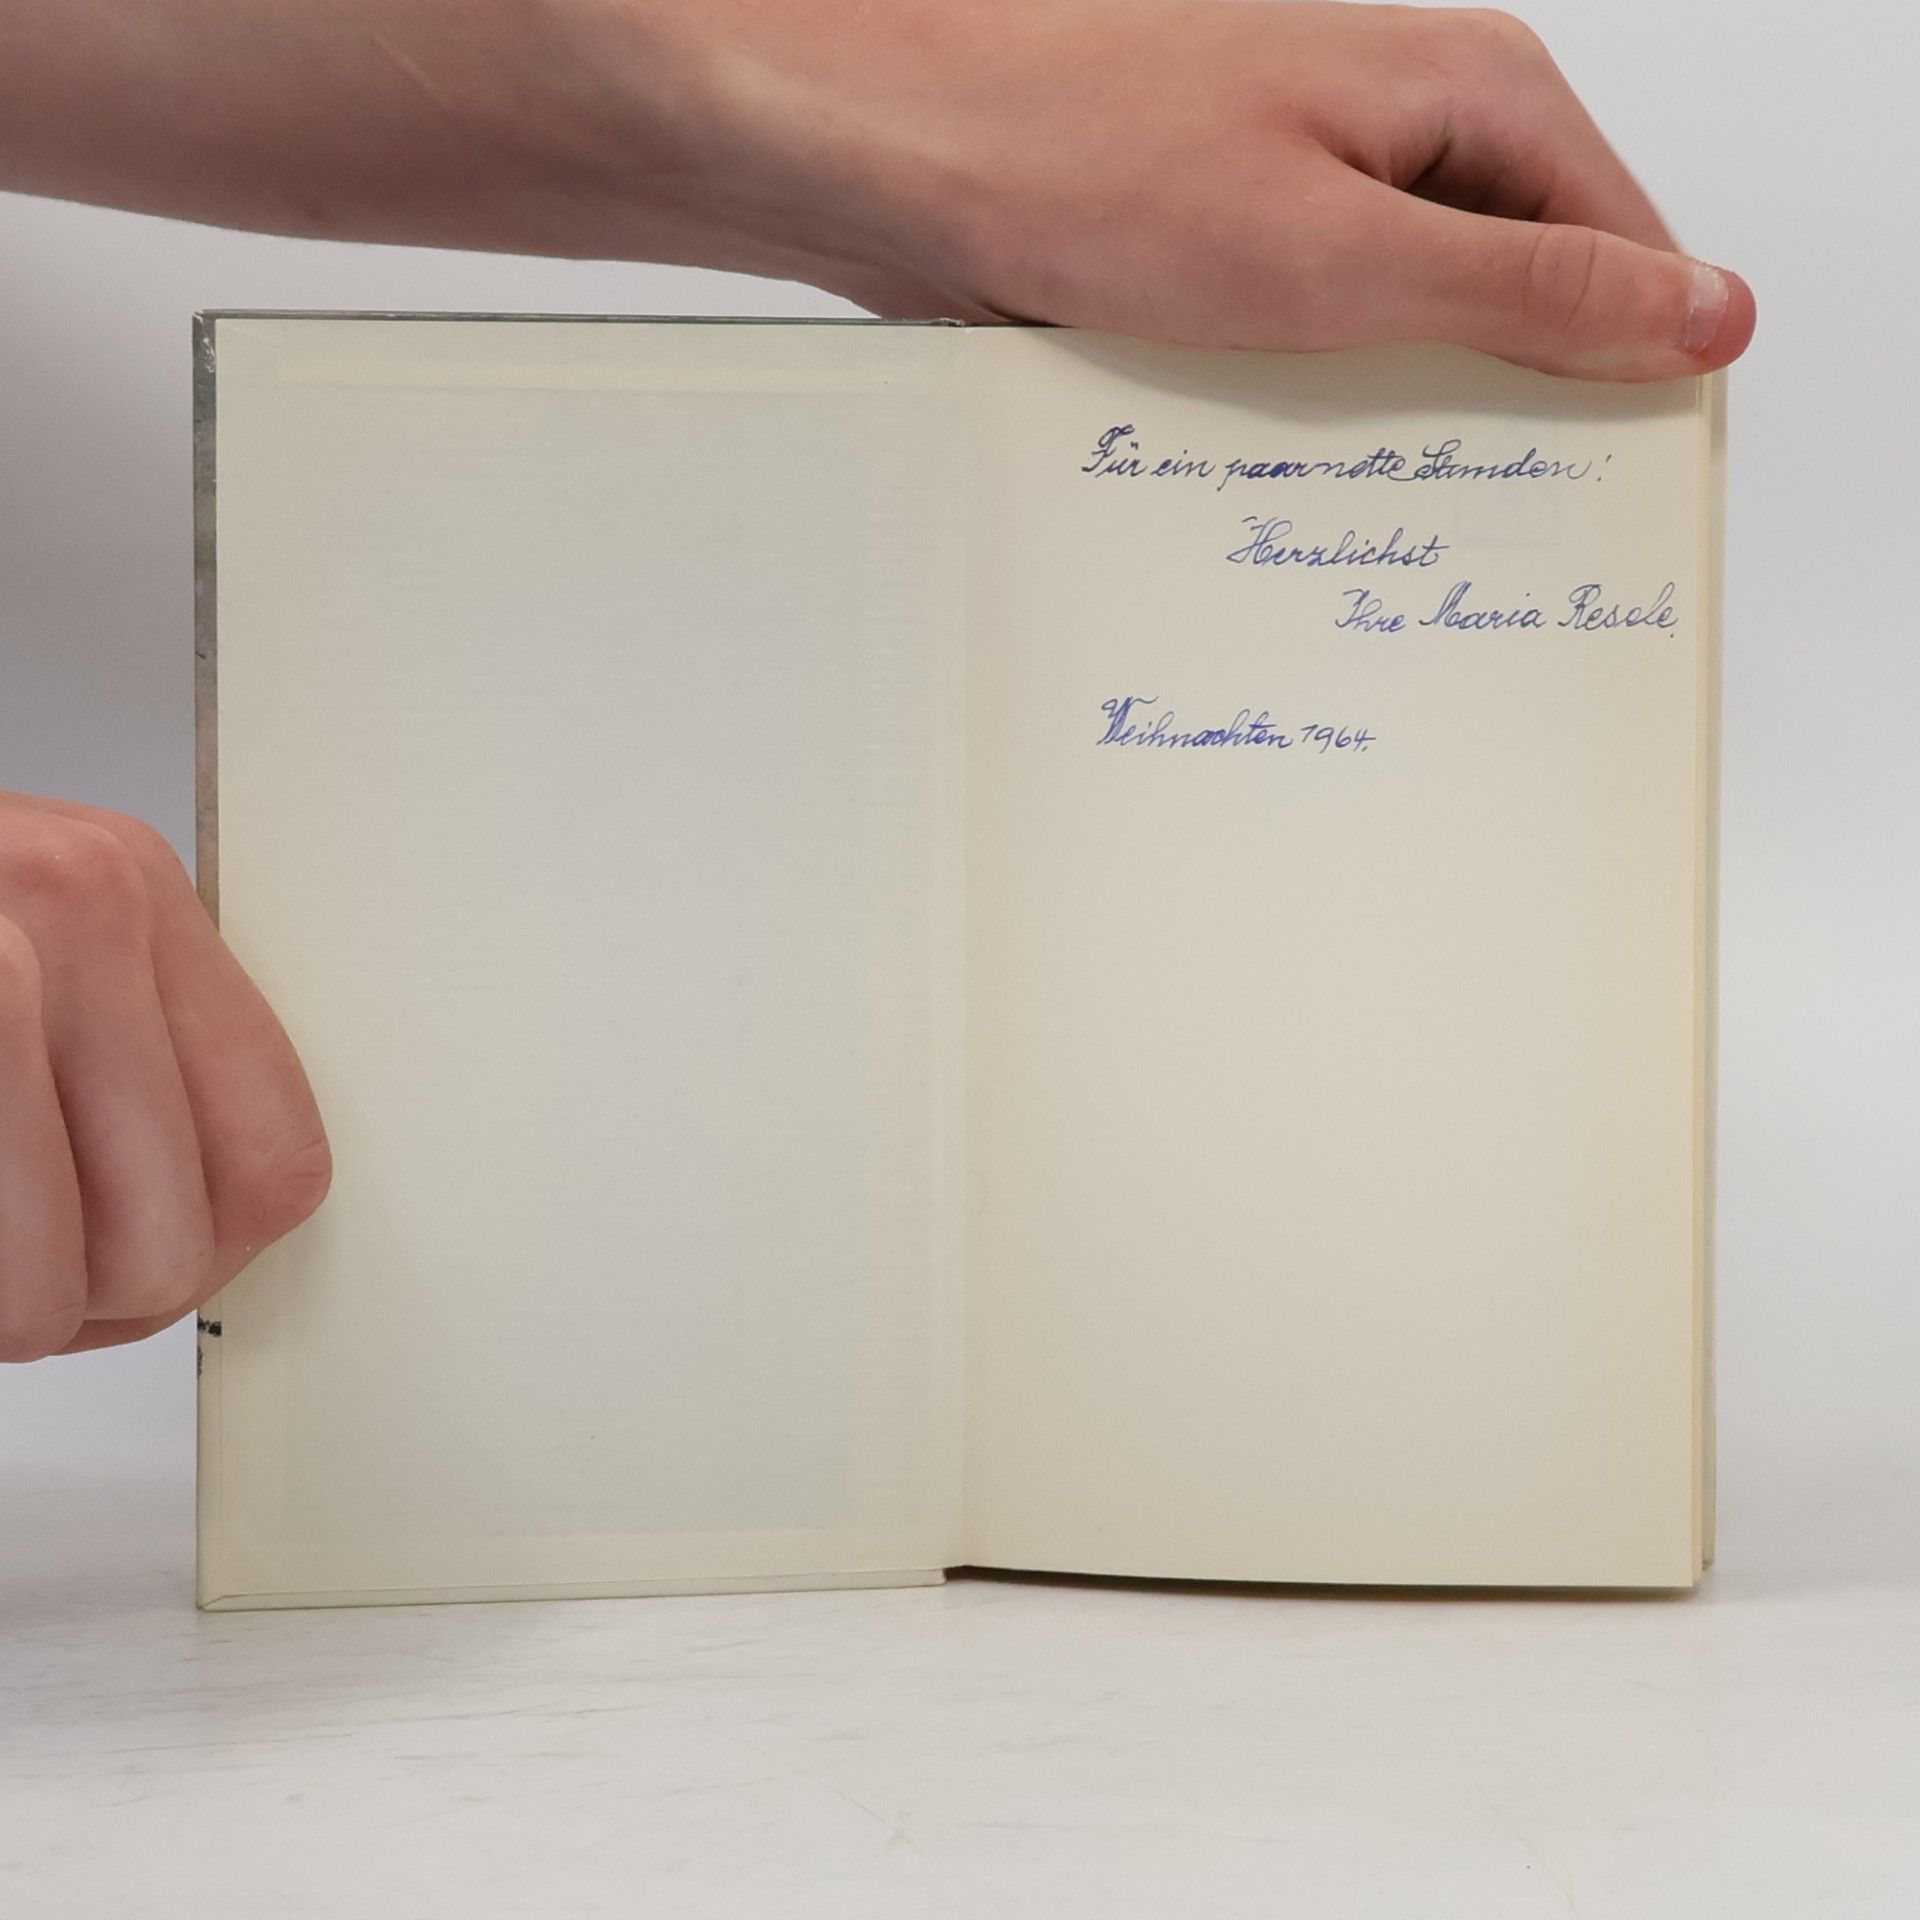 Für ein paar nette Stunden!
Herzlichst
Ihre Maria Resele.
Weihnachten 1964.